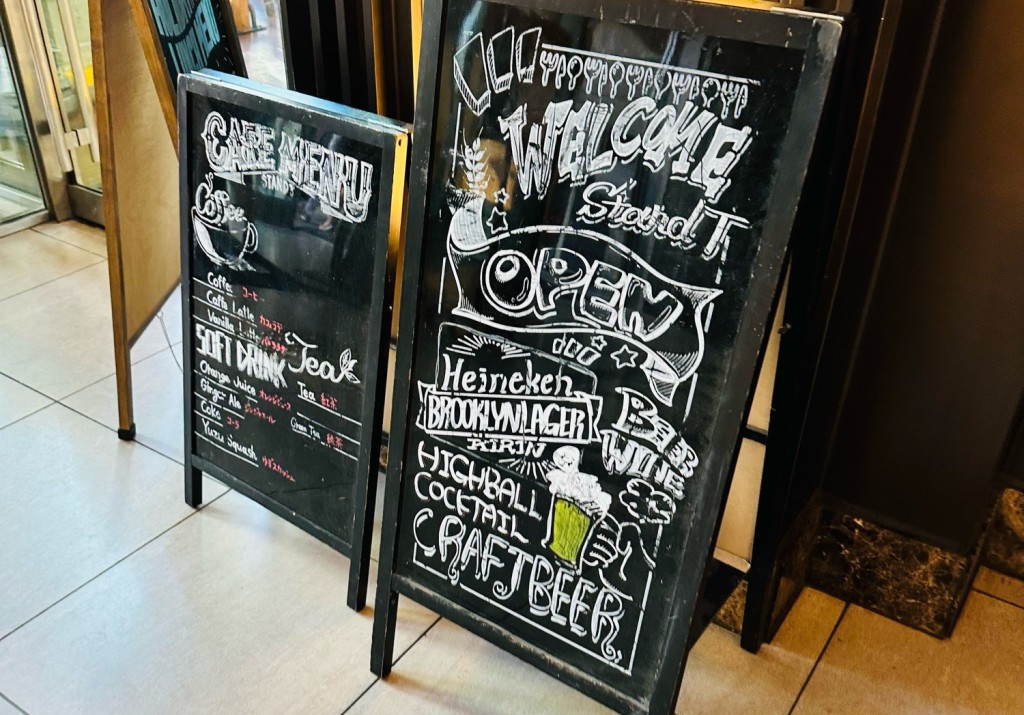 CAFE MENU
STAND T
Coffee
Coffe コーヒー
Caffe Latte カフェラテ
Vanilla Latte バニララテ
SOFT DRINK
Orange Juice オレンジジュース
Ginger Ale ジンジャエール
Coke コーラ
Yuzu Squash ゆずスカッシュ
Tea
Tea 紅茶
Green Tea 緑茶
WELCOME
Stand T
OPEN
Heineken
BROOKLYN LAGER
KIRIN
BEER
WINE
HIGHBALL
COCKTAIL
CRAFT BEER